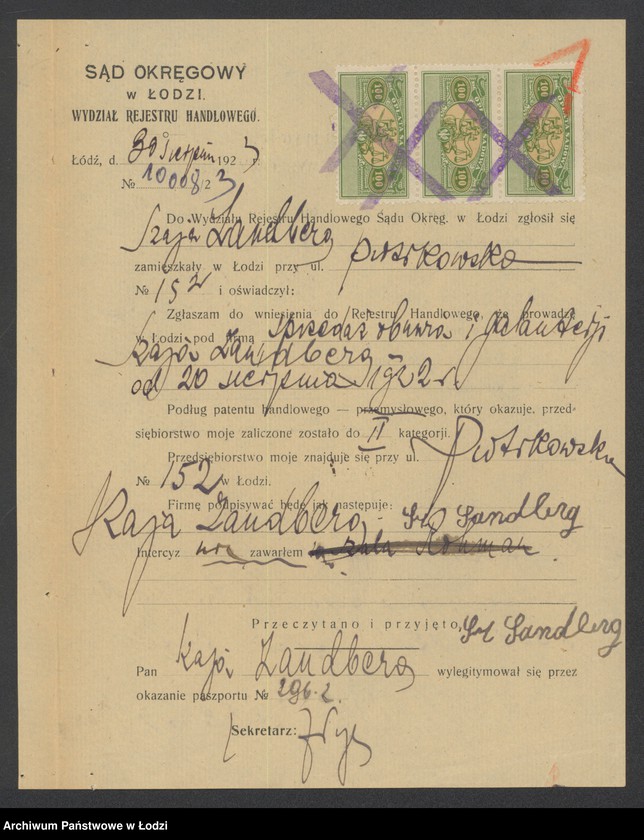 SĄD OKRĘGOWY
w ŁODZI.
WYDZIAŁ REJESTRU HANDLOWEGO.
Łódź, d. 30 Sierpnia 1923 r.
№ 10008/23
100 100 100
100 100 100
Do Wydziału Rejestru Handlowego Sądu Okręg. w Łodzi zgłosił się
Szaja Landberg
zamieszkały w Łodzi przy ul. Piotrkowska
№ 152 i oświadczył:
Zgłaszam do wniesienia do Rejestru Handlowego, że prowadzę
w Łodzi pod firmą sprzedaż obuwia i galanterji
Szaja Landberg
od 20 sierpnia 1922 r.
Podług patentu handlowego — przemysłowego, który okazuje, przed-
siębiorstwo moje zaliczone zostało do II kategorji.
Przedsiębiorstwo moje znajduje się przy ul. Piotrkowska
№ 152 w Łodzi.
Firmę podpisywać będę jak następuje:
Szaja Landberg - Sz Landberg
Intercyz nie zawarłem
Przeczytano i przyjęto, Sz Landberg
Pan Szaja Landberg wylegitymował się przez
okazanie paszportu № 296.2.
Sekretarz:
Archiwum Państwowe w Łodzi